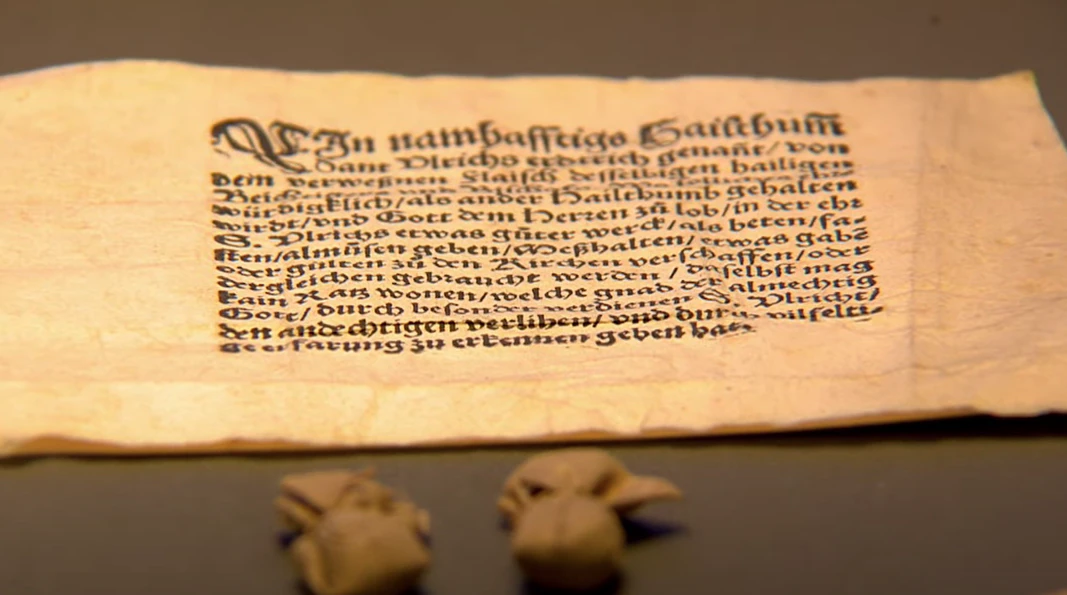 EIn namhafftigs Hailthum̃
Sant Vlrichs erdterich genañt/von
dem verweßnen Flaisch desselbigen hailigen
würdigklich/als ander Hailthumb gehalten
wirdt/vnd Gott dem Herren zů lob/in der ehr
S. Vlrichs etwas gůter werck/als beten/fa⸗
sten/almůsen geben/Meßhalten/etwas gabẽ
oder gülten zů den Kirchen verschaffen/oder
dergleichen gebraucht werden/daselbst mag
kain Ratz wonen/welche gnad der almechtig
Gott/durch besonder verdienen S. Vlrichs/
den andechtigen verlihen/vnd durch vilfelti⸗
ge erfarung zu erkennen geben hat.